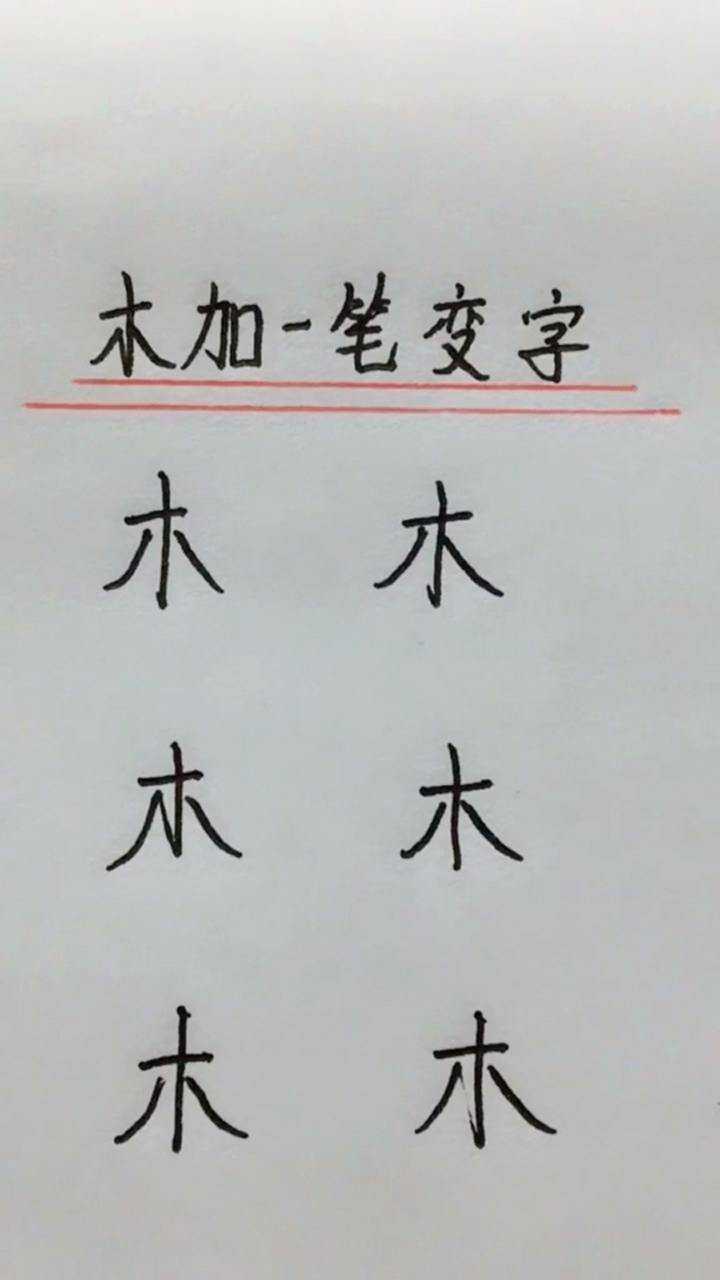 木加一笔变字
木 木
木 木
木 木